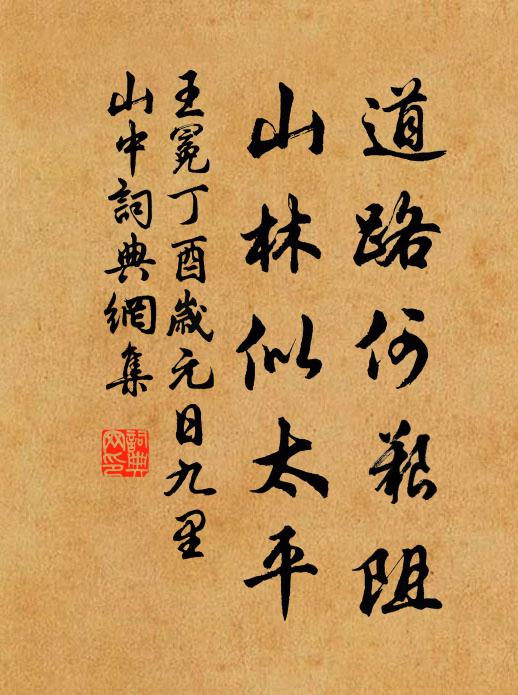 道路何艱阻
山林似太平
王冕丁酉歲元日九里
山中詞典網集
詞典網印